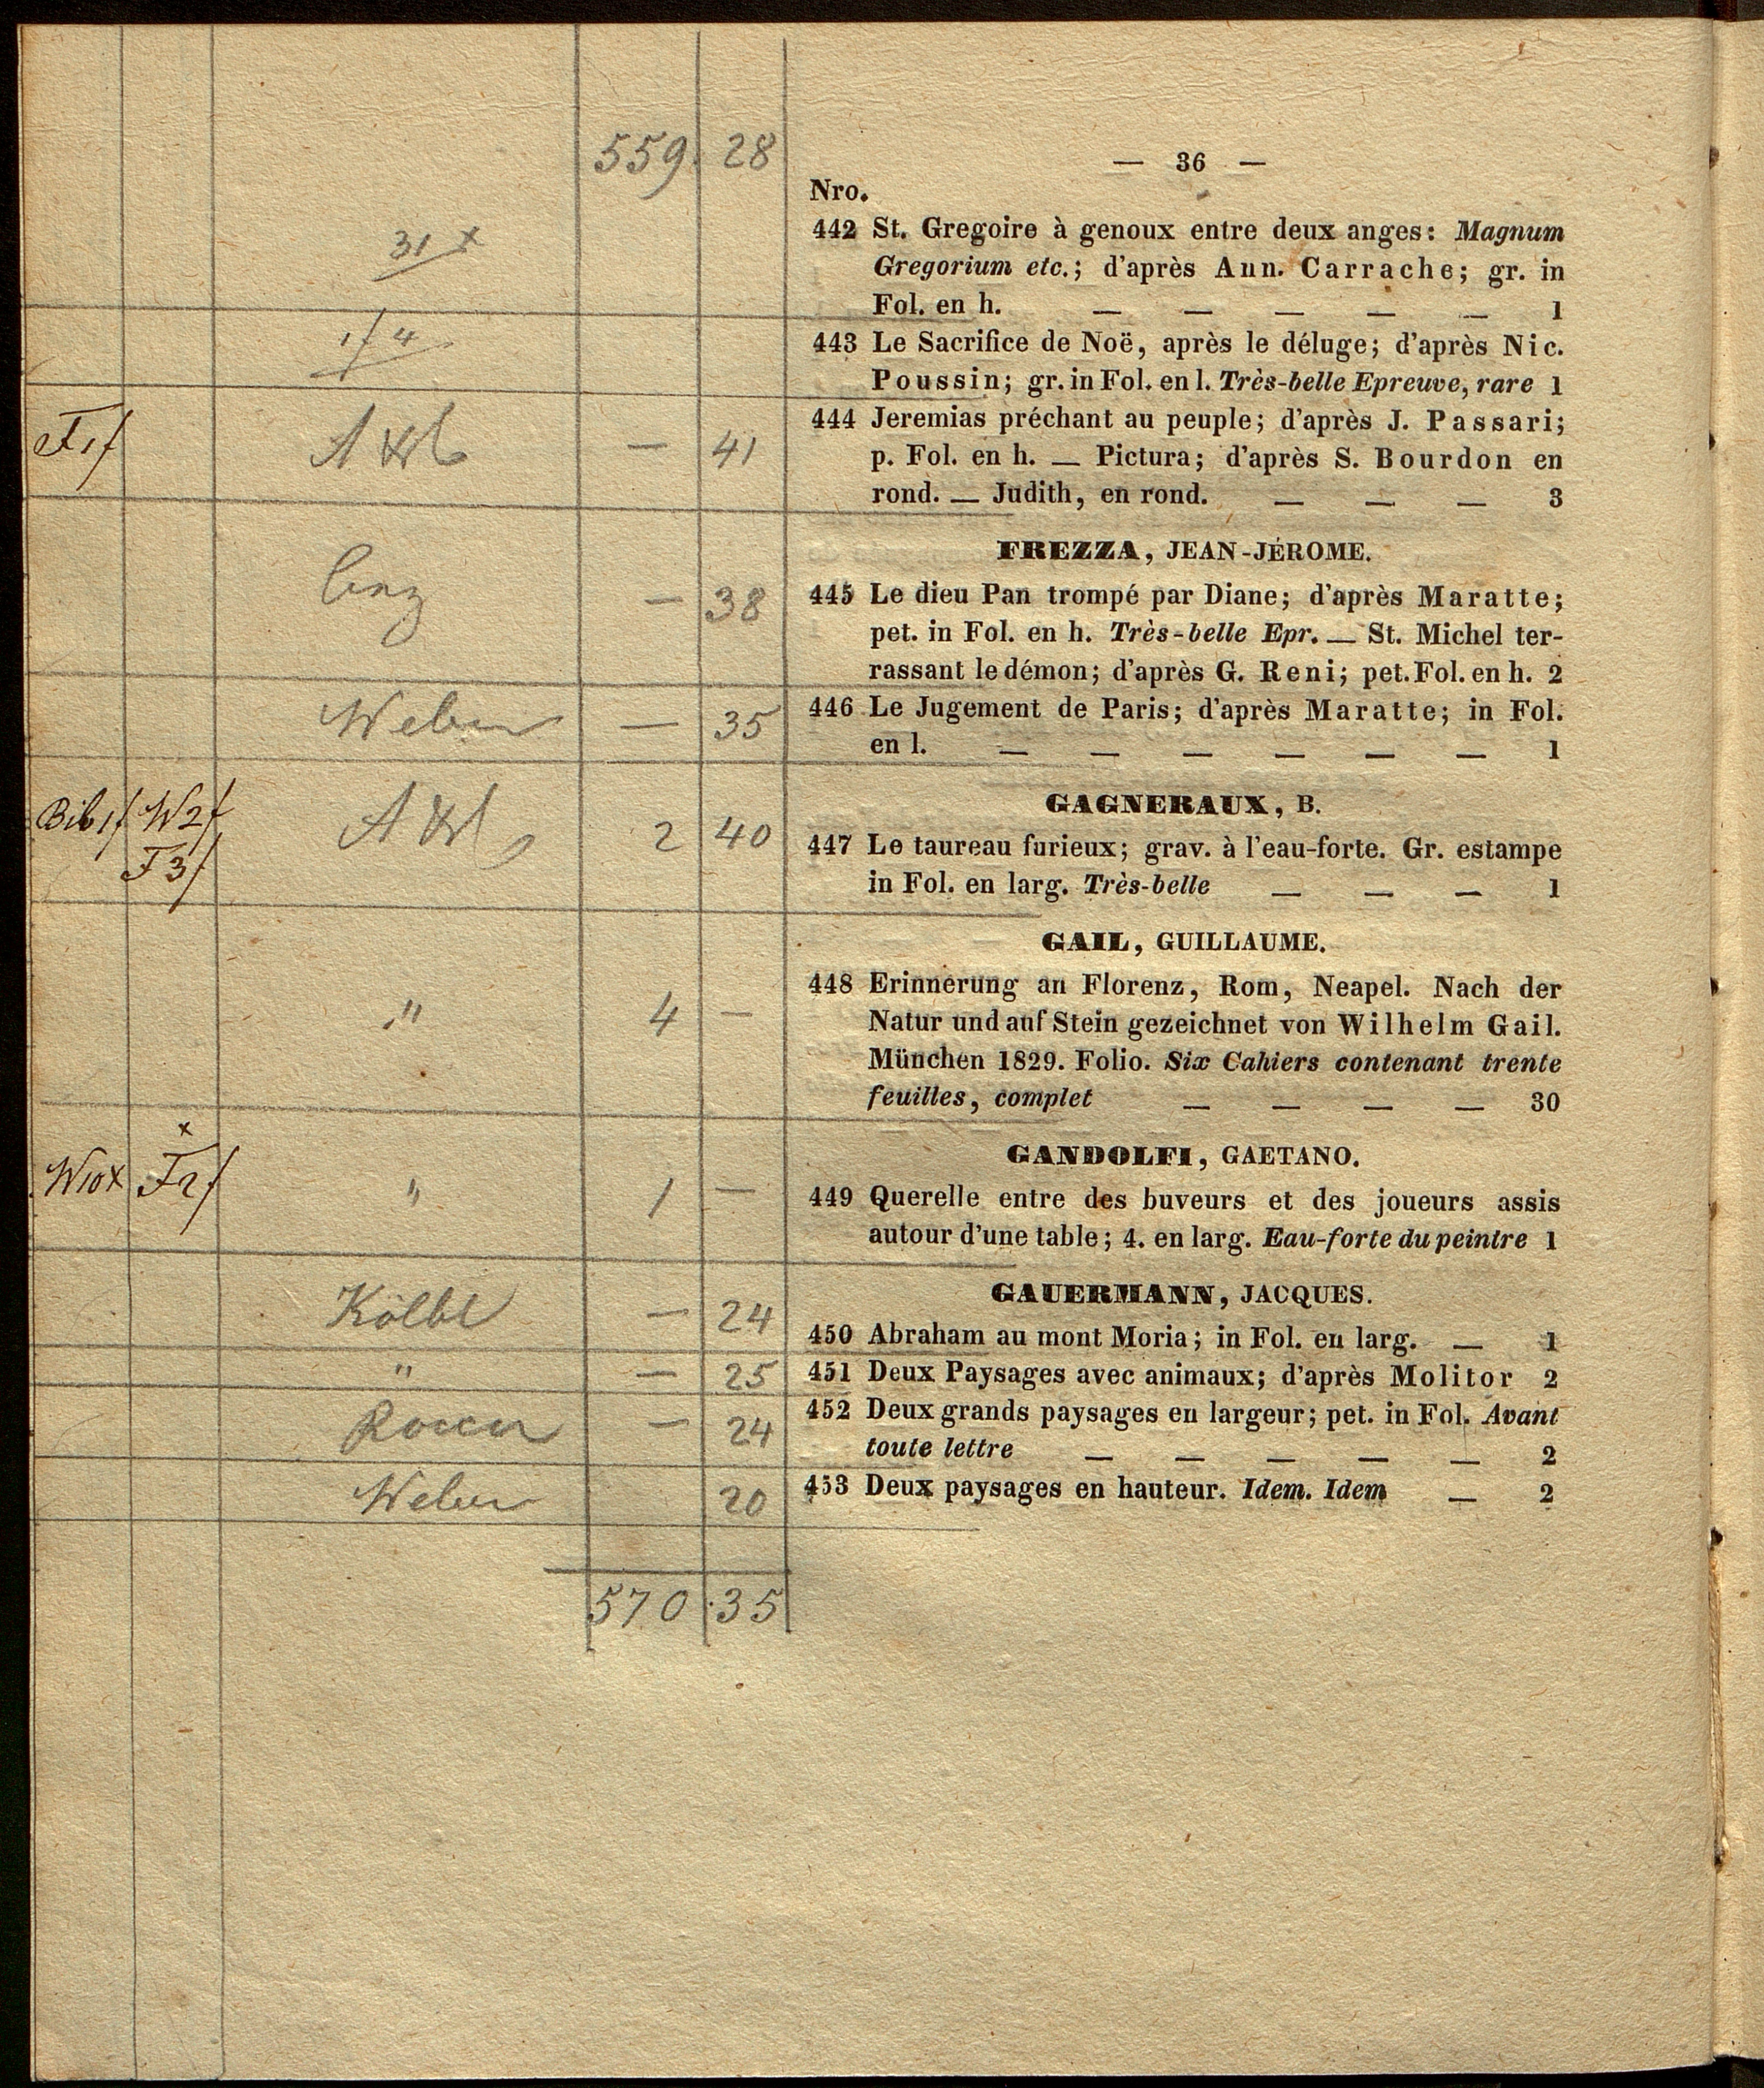 559. 28
— 36 —
Nro.
31 x
442 St. Gregoire à genoux entre deux anges: Magnum
Gregorium etc.; d'après Ann. Carrache; gr. in
Fol. en h. — — — — — 1
1f 4
443 Le Sacrifice de Noë, après le déluge; d'après Nic.
Poussin; gr. in Fol. en l. Très-belle Epreuve, rare 1
F1f — 41
444 Jeremias préchant au peuple; d'après J. Passari;
p. Fol. en h. — Pictura; d'après S. Bourdon en
rond. — Judith, en rond. — — — 3
FREZZA, JEAN-JÉROME.
— 38
445 Le dieu Pan trompé par Diane; d'après Maratte;
pet. in Fol. en h. Très-belle Epr. — St. Michel ter-
rassant le démon; d'après G. Reni; pet. Fol. en h. 2
Weber — 35
446 Le Jugement de Paris; d'après Maratte; in Fol.
en l. — — — — — — 1
GAGNERAUX, B.
Bib 1f W2f 2 40
F3f
447 Le taureau furieux; grav. à l'eau-forte. Gr. estampe
in Fol. en larg. Très-belle — — — 1
GAIL, GUILLAUME.
" 4 —
448 Erinnerung an Florenz, Rom, Neapel. Nach der
Natur und auf Stein gezeichnet von Wilhelm Gail.
München 1829. Folio. Six Cahiers contenant trente
feuilles, complet — — — — 30
GANDOLFI, GAETANO.
x
W10x F2f " 1 —
449 Querelle entre des buveurs et des joueurs assis
autour d'une table; 4. en larg. Eau-forte du peintre 1
GAUERMANN, JACQUES.
Kölbl — 24
450 Abraham au mont Moria; in Fol. en larg. — 1
" — 25
451 Deux Paysages avec animaux; d'après Molitor 2
— 24
452 Deux grands paysages en largeur; pet. in Fol. Avant
toute lettre — — — — — 2
Weber 20
453 Deux paysages en hauteur. Idem. Idem — 2
570 .35